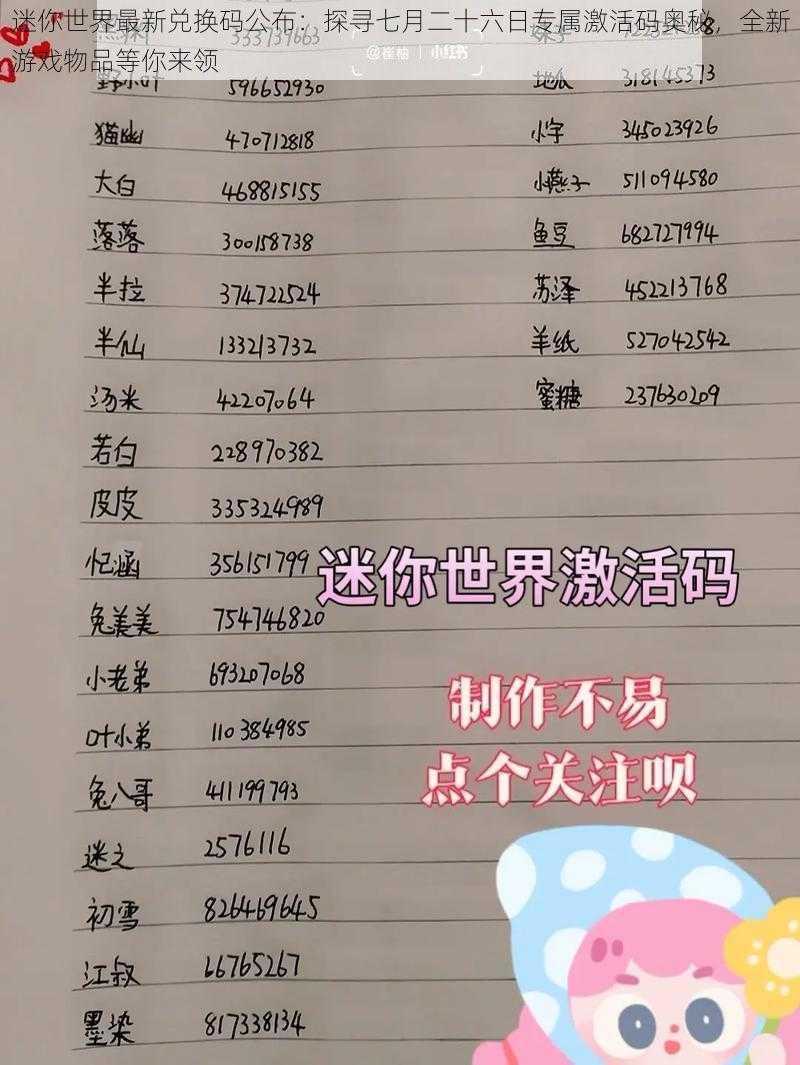 迷你世界最新兑换码公布：探寻七月二十六日专属激活码奥秘，全新
游戏物品等你来领
@崔柚 | 小红书
野小叶 596652930
地瓜 318145373
猫幽 470712818
小字 345023926
大白 468815155
小燕子 511094580
落落 300158738
鱼豆 682727994
半拉 374722524
苏泽 452213768
半仙 133213732
羊纸 527042542
汤米 42207064
蜜糖 237630209
若白 228970382
皮皮 335324989
忆涵 356151799
迷你世界激活码
兔美美 754746820
小老弟 693207068
制作不易
叶小弟 110384985
点个关注呗
兔八哥 411199793
迷之 2576116
初雪 826469645
江叔 66765267
墨染 817338134